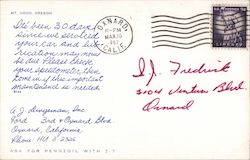 MT. HOOD, OREGON
It's been 30 days
since we serviced
your car and lub-
rication may now
be due. Please check
your speedometer, then
come in if this important
maintenance is needed.
OXNARD
PM
MAR 16
CALIF.
Q. J. Dingeman, Inc.
Ford 3rd & Oxnard Blvd.
Oxnard, California
Phone: HU 3-2235
I. J. Fredrick
5104 Ventura Blvd.
Oxnard
ASK FOR PENNZOIL WITH Z-7